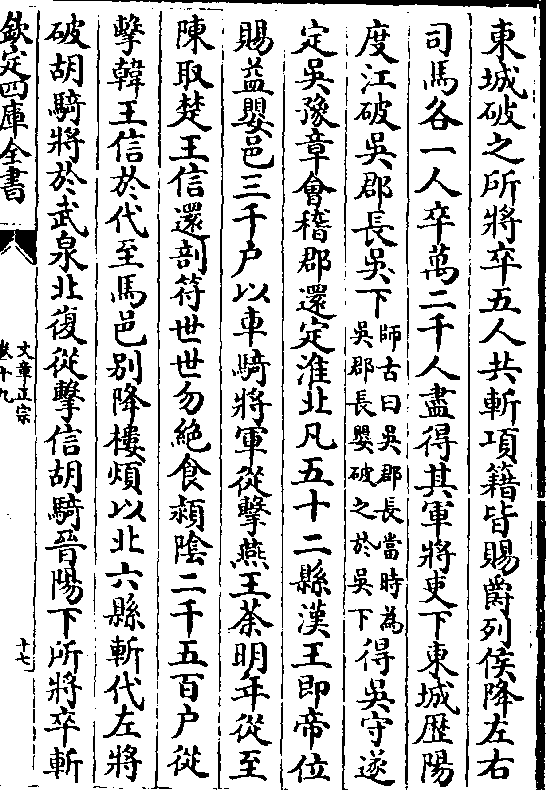 東城破之所將卒五人共斬項籍皆賜爵列侯降左右
司馬各一人卒萬二千人盡得其軍將吏下東城歴陽
度江破吳郡長吳下師古曰吳郡長當時為吳郡長嬰破之於吳下得吳守遂
定吳豫章會稽郡還定淮北凡五十二縣漢王即帝位
賜益嬰邑三千户以車騎將軍從擊燕王荼明年從至
陳取楚王信還剖符世世勿絶食潁隂二千五百户從
擊韓王信於代至馬邑别降樓煩以北六縣斬代左將
破胡騎將於武泉北復從擊信胡騎晉陽下所將卒斬
欽定四庫全書
文章正宗
卷十九
十七